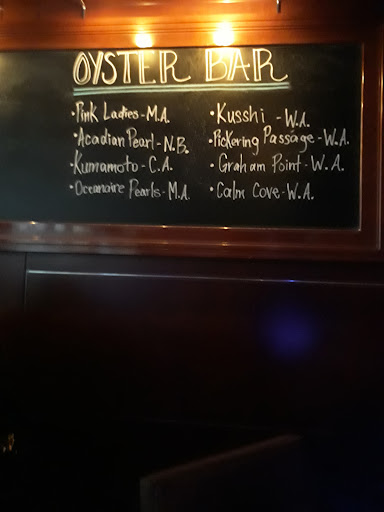 OYSTER BAR
•Pink Ladies-M.A.
•Acadian Pearl-N.B.
•Kumamoto-C.A.
•Oceanaire Pearls-M.A.
•Kusshi -W.A.
•Pickering Passage-W.A.
•Graham Point-W.A.
•Calm Cove-W.A.